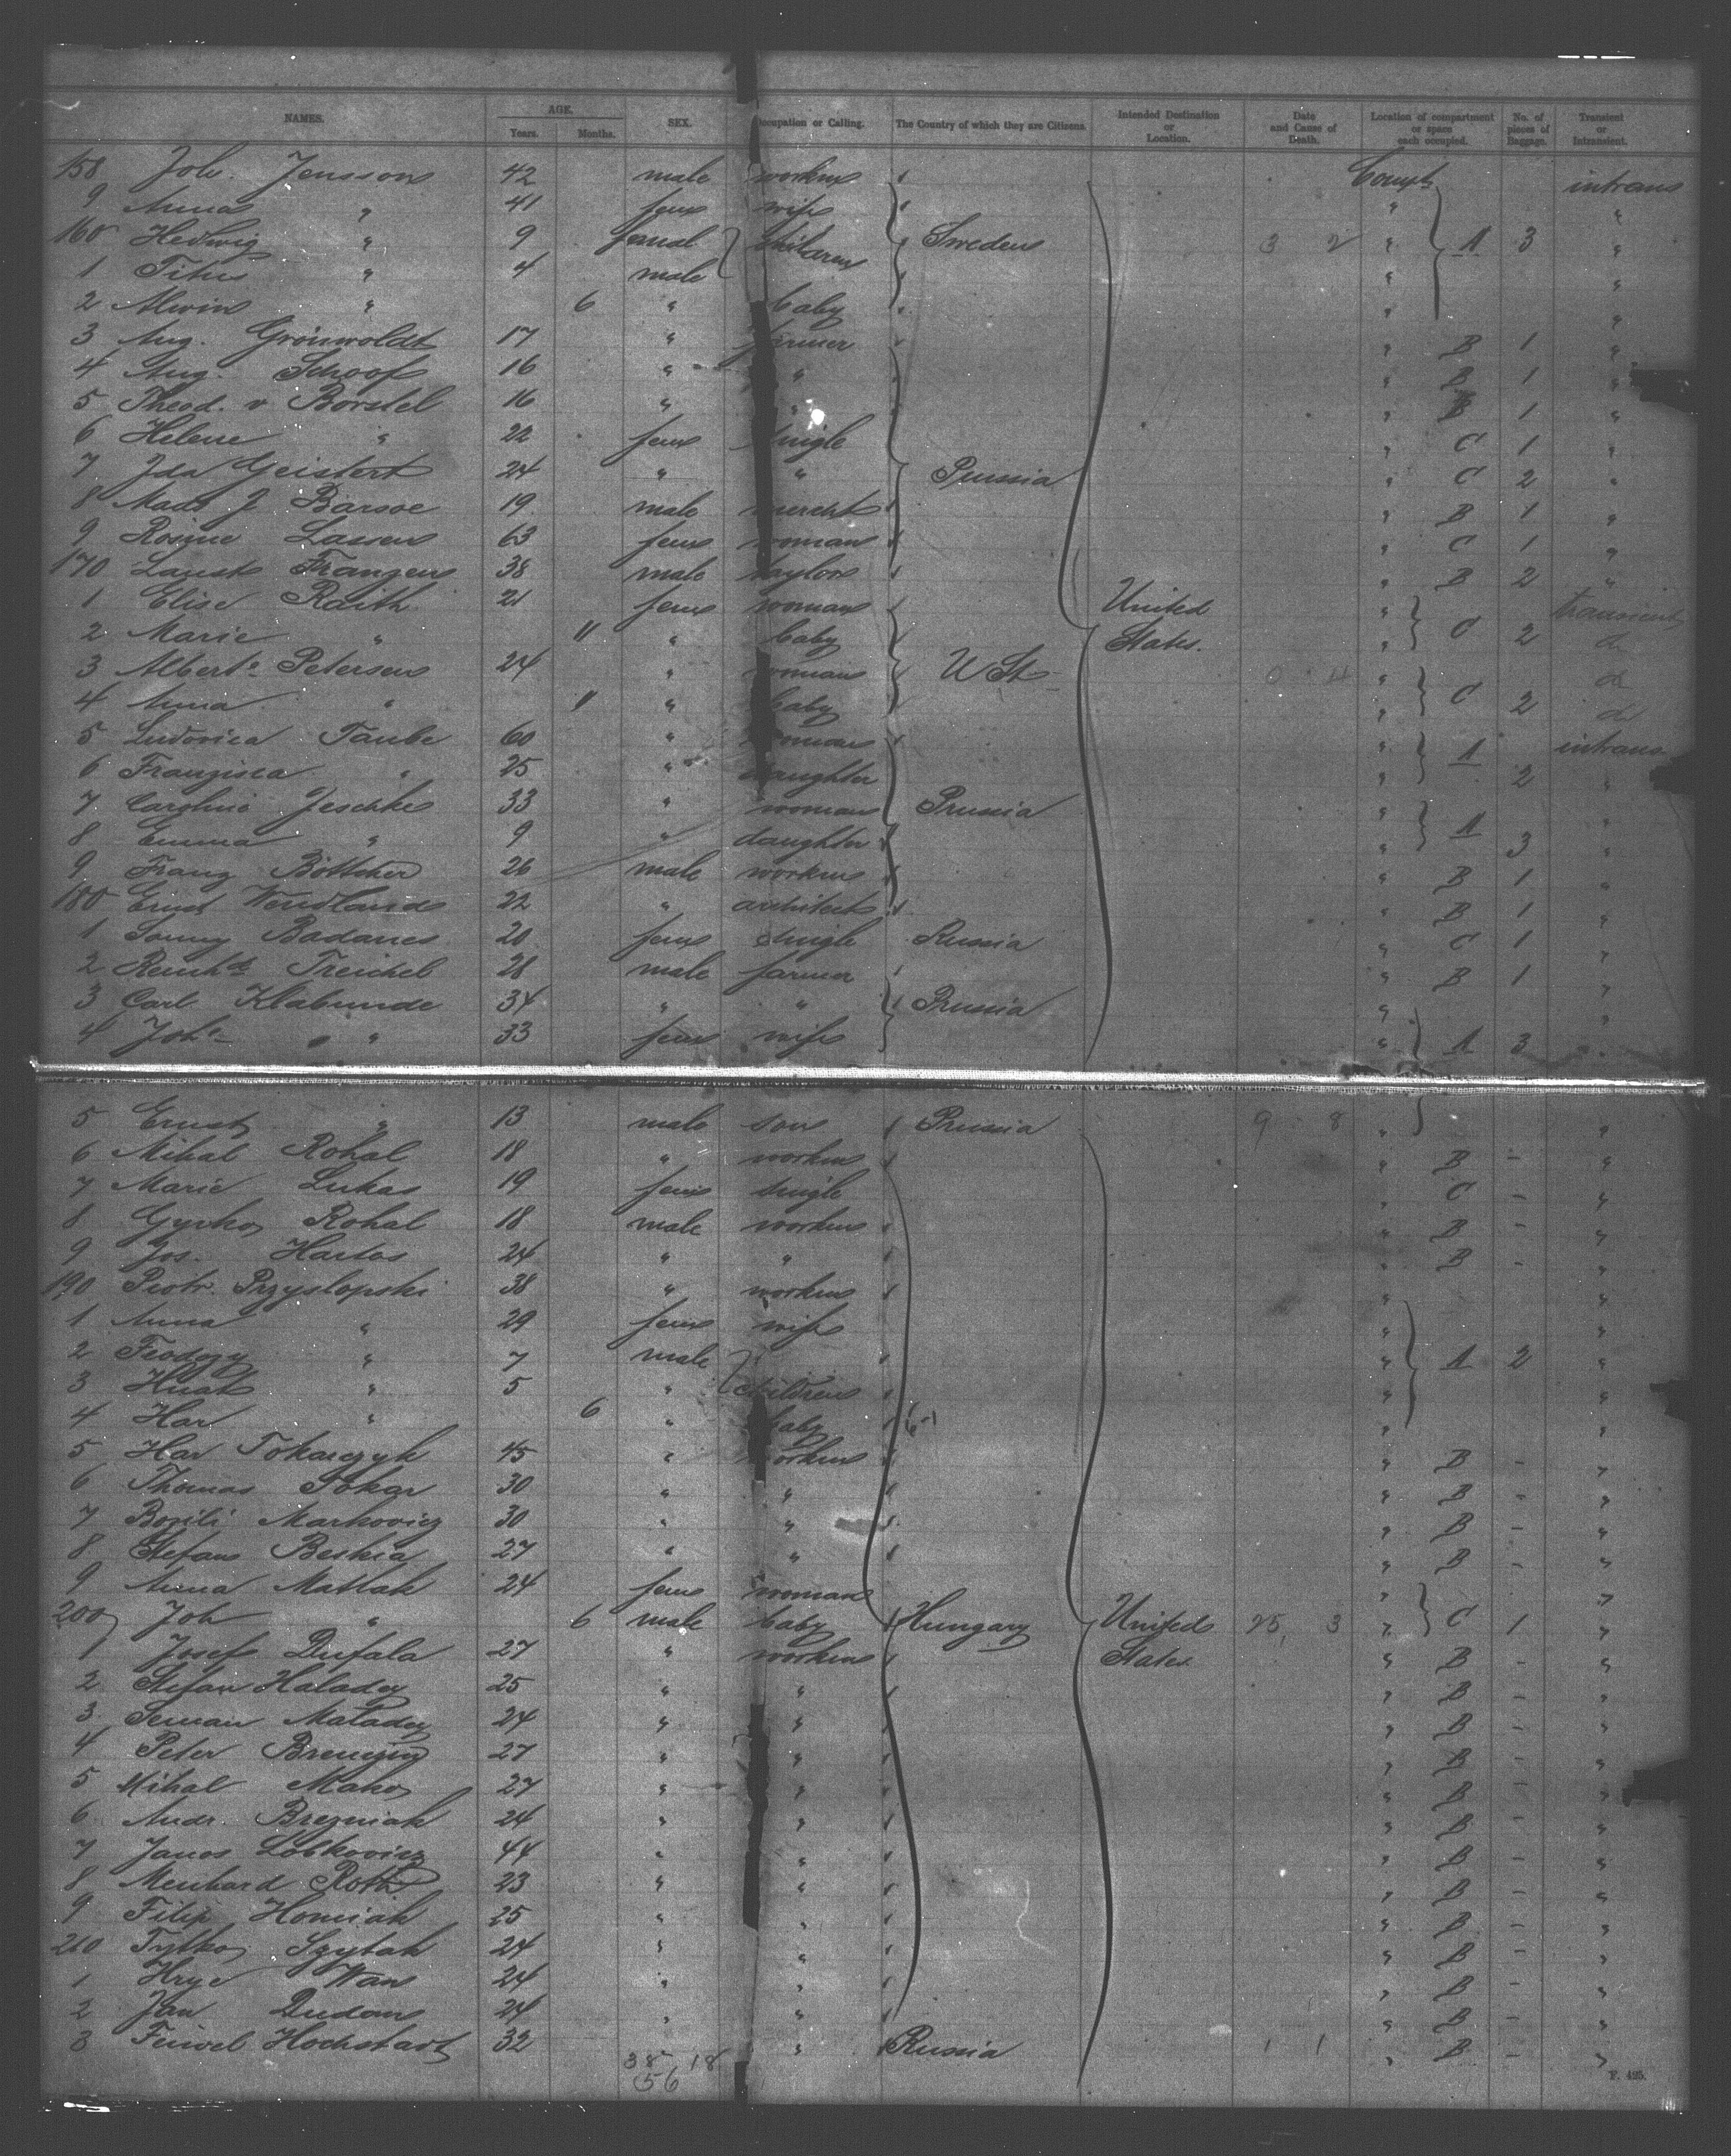 NAMES. AGE. Years. Months. SEX. Occupation or Calling. The Country of which they are Citizens. Intended Destination or Location. Date and Cause of Death. Location of compartment or space each occupied. No. of pieces of Baggage. Transient or Intransient.
158 Joh. Jensson 42 male workm Compt intrans
9 Anna " 41 fem wife " "
160 Hedwig " 9 femal children Sweden 3 2 " A 3 "
1 " 4 male " "
2 Alwin " 6 " baby " "
3 Aug. Grönwoldt 17 " farmer " B 1 "
4 Aug. Schoof 16 " " " B 1 "
5 Theod. v Borstel 16 " " " B 1 "
6 Helene " 22 fem single " C 1 "
7 Ida Geistert 24 " " Prussia " C 2 "
8 Mads J Barsoe 19 male mercht " B 1 "
9 Rosine Lassen 63 fem woman " C 1 "
170 Franzen 38 male taylor " B 2 "
1 Elise Raith 21 fem woman United " transient
2 Marie " 11 " baby States. " C 2 do
3 Albert. Petersen 24 " woman U St. 0 4 " do
4 Anna " 11 " baby " C 2 do
5 Ludovica Taube 60 " woman " A intrans
6 Franzisca " 25 " daughter " 2 "
7 Caroline Jeschke 33 " woman Prussia " "
8 Emma " 9 " daughter " A 3 "
9 Franz Böttcher 26 male workm " B 1 "
180 Ernst Wendland 22 " architect " B 1 "
1 Badanes 20 fem single Russia " C 1 "
2 Reinhd. Treichel 28 male farmer " B 1 "
3 Carl Klabunde 34 " " Prussia " "
4 Joha. " 33 fem wife " A 3 "
5 Ernst " 13 male son Prussia 9 8 " "
6 Mihal Rohal 18 " workm " B - "
7 Marie Lukas 19 fem single " C - "
8 Rohal 18 male workm " B - "
9 Jos. Hartos 24 " " " B - "
190 Piotr. Przyslopski 38 " workm " "
1 Anna " 29 fem wife " "
2 Feodozy " 7 male " A 2 "
3 " 5 " children " "
4 Har " 6 " baby " "
5 Har Tokarczyk 45 " workm " B - "
6 Thomas Tokar 30 " " " B - "
7 Markovicz 30 " " " B - "
8 Stefan 27 " " " B - "
9 Anna Matlak 24 fem woman " "
200 Joh " 6 male baby Hungary United 25, 3 " C 1 "
1 Josef Dufala 27 " workm States. " B - "
2 Stefan Haladey 25 " " " B - "
3 Maladey 24 " " " B - "
4 Peter 27 " " " B - "
5 Mihal Mako 27 " " " B - "
6 Andr. Brezniak 24 " " " B - "
7 Janos Lobkovicz 44 " " " B - "
8 Roth 23 " " " B - "
9 Filip Homiak 25 " " " B - "
210 Szytak 24 " " " B - "
1 Wan 24 " " " B - "
2 Jan Dudom 24 " " " B - "
3 Feiwel Hochstadt 32 " Russia 1 1 " B - "
38 18
56
F. 495.